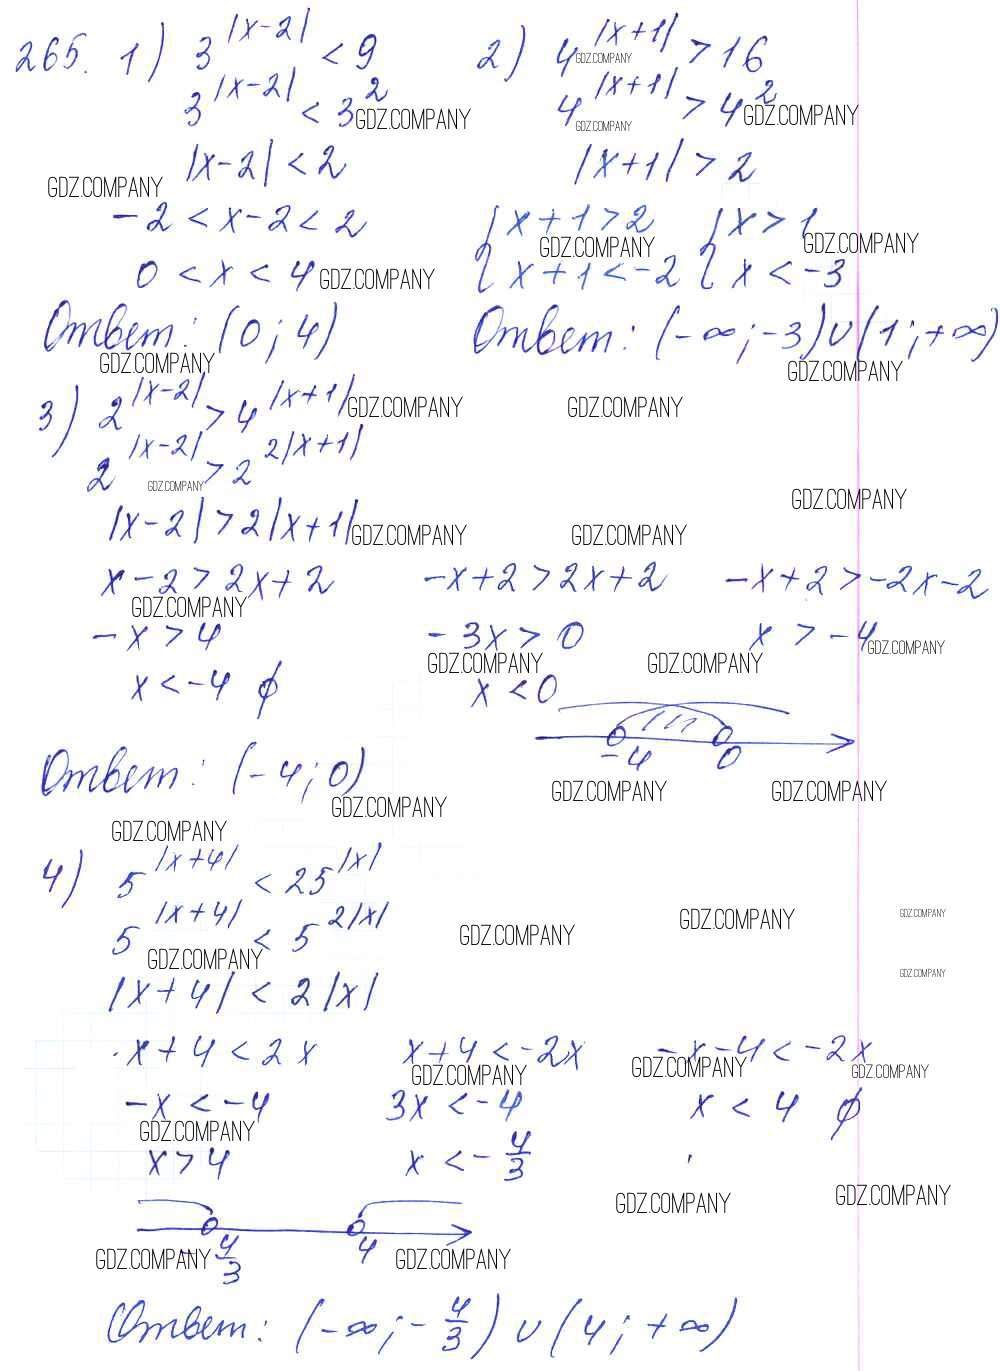 265. 1) 3^|x-2| < 9 2) 4^|x+1| > 16
GDZ.COMPANY
3^|x-2| < 3^2 4^|x+1| > 4^2
GDZ.COMPANY GDZ.COMPANY GDZ.COMPANY
|x-2| < 2 |x+1| > 2
GDZ.COMPANY
-2 < x-2 < 2 { x+1>2 { x > 1
GDZ.COMPANY GDZ.COMPANY
0 < x < 4 { x+1<-2 { x < -3
GDZ.COMPANY
Ответ: (0; 4) Ответ: (-∞; -3)∪(1; +∞)
GDZ.COMPANY GDZ.COMPANY
3) 2^|x-2| > 4^|x+1|
GDZ.COMPANY GDZ.COMPANY
2^|x-2| > 2^2|x+1|
GDZ.COMPANY GDZ.COMPANY
|x-2| > 2|x+1|
GDZ.COMPANY GDZ.COMPANY
x-2 > 2x+2 -x+2 > 2x+2 -x+2 > -2x-2
GDZ.COMPANY
-x > 4 -3x > 0 x > -4
GDZ.COMPANY GDZ.COMPANY GDZ.COMPANY
x < -4 ∅ x < 0
-4 0
Ответ: (-4; 0)
GDZ.COMPANY GDZ.COMPANY GDZ.COMPANY
GDZ.COMPANY
4) 5^|x+4| < 25^|x|
5^|x+4| < 5^2|x|
GDZ.COMPANY GDZ.COMPANY GDZ.COMPANY
GDZ.COMPANY GDZ.COMPANY
|x+4| < 2|x|
x+4 < 2x x+4 < -2x -x-4 < -2x
GDZ.COMPANY GDZ.COMPANY GDZ.COMPANY
-x < -4 3x < -4 x < 4 ∅
GDZ.COMPANY
x > 4 x < -4/3
GDZ.COMPANY GDZ.COMPANY
-4/3 4
GDZ.COMPANY GDZ.COMPANY
Ответ: (-∞; -4/3) ∪ (4; +∞)